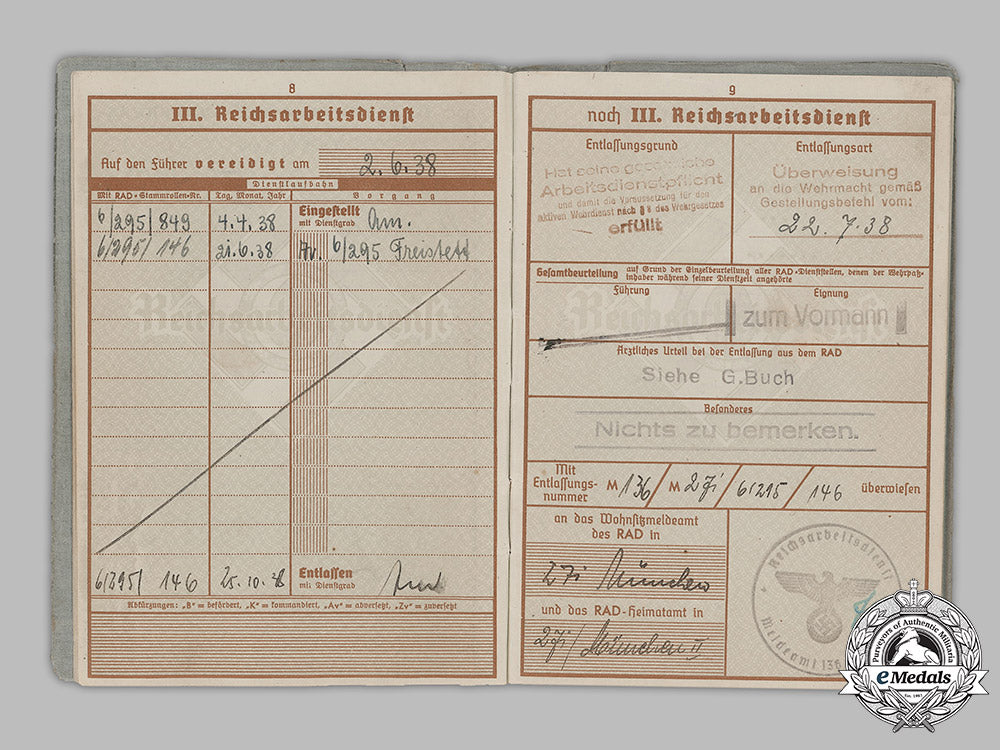 8
III. Reichsarbeitsdienst
Auf den Führer vereidigt am 2.6.38
Dienstlaufbahn
Mit RAD-Stammrollen-Nr. Tag, Monat, Jahr Vorgang
6/295/849 4.4.38 Eingestellt
mit Dienstgrad Am.
6/295/146 21.6.38 Av. 6/295 Freistett
Reichsarbeitsdienst
6/295/ 146 25.10.38 Entlassen
mit Dienstgrad
Abkürzungen: „B" = befördert, „K" = kommandiert, „Av" = abversetzt, „Zv" = zuversetzt
9
noch III. Reichsarbeitsdienst
Entlassungsgrund
Hat seine gesetzliche
Arbeitsdienstpflicht
und damit die Voraussetzung für den
aktiven Wehrdienst nach § 8 des Wehrgesetzes
erfüllt
Entlassungsart
Überweisung
an die Wehrmacht gemäß
Gestellungsbefehl vom:
22.7.38
Gesamtbeurteilung auf Grund der Einzelbeurteilung aller RAD-Dienststellen, denen der Wehrpaß-
inhaber während seiner Dienstzeit angehörte
Führung
Eignung
zum Vormann
Reichsarbeitsdienst
Ärztliches Urteil bei der Entlassung aus dem RAD
Siehe G.Buch
Besonderes
Nichts zu bemerken.
Mit
Entlassungs-
nummer M 136/ M 271/ 6/295/ 146 überwiesen
an das Wohnsitzmeldeamt
des RAD in
271 München
und das RAD-Heimatamt in
271/ München II
Reichsarbeitsdienst
Meldeamt 136
Purveyors of Authentic Militaria
eMedals
Est. 1967